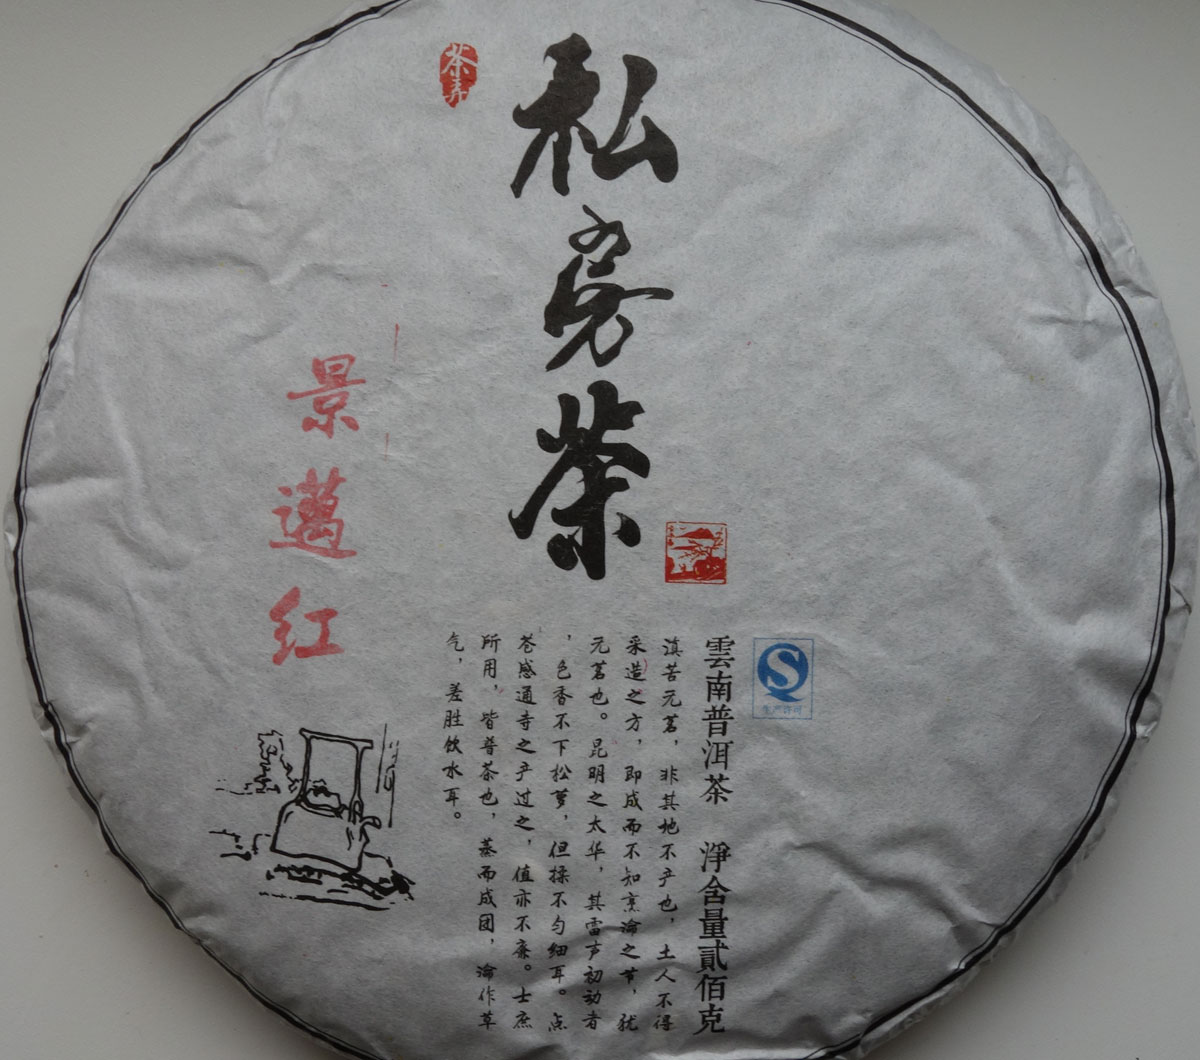 茶弄
私房茶
景邁红
雲南普洱茶 淨含量貳佰克
生产许可
滇苦元茗，非其地不产也，土人不得
采造之方，即成而不知烹瀹之节，犹
元茗也。昆明之太华，其雷声初动者
，色香不下松萝，但揉不匀细耳。点
苍感通寺之产过之，值亦不廉。士庶
所用，皆普茶也，蒸而成团，瀹作草
气，差胜饮水耳。